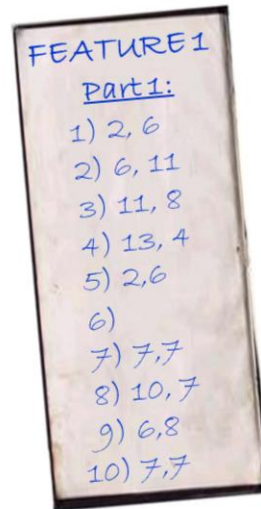 FEATURE1
Part1:
1) 2, 6
2) 6, 11
3) 11, 8
4) 13, 4
5) 2,6
6)
7) 7,7
8) 10, 7
9) 6,8
10) 7,7